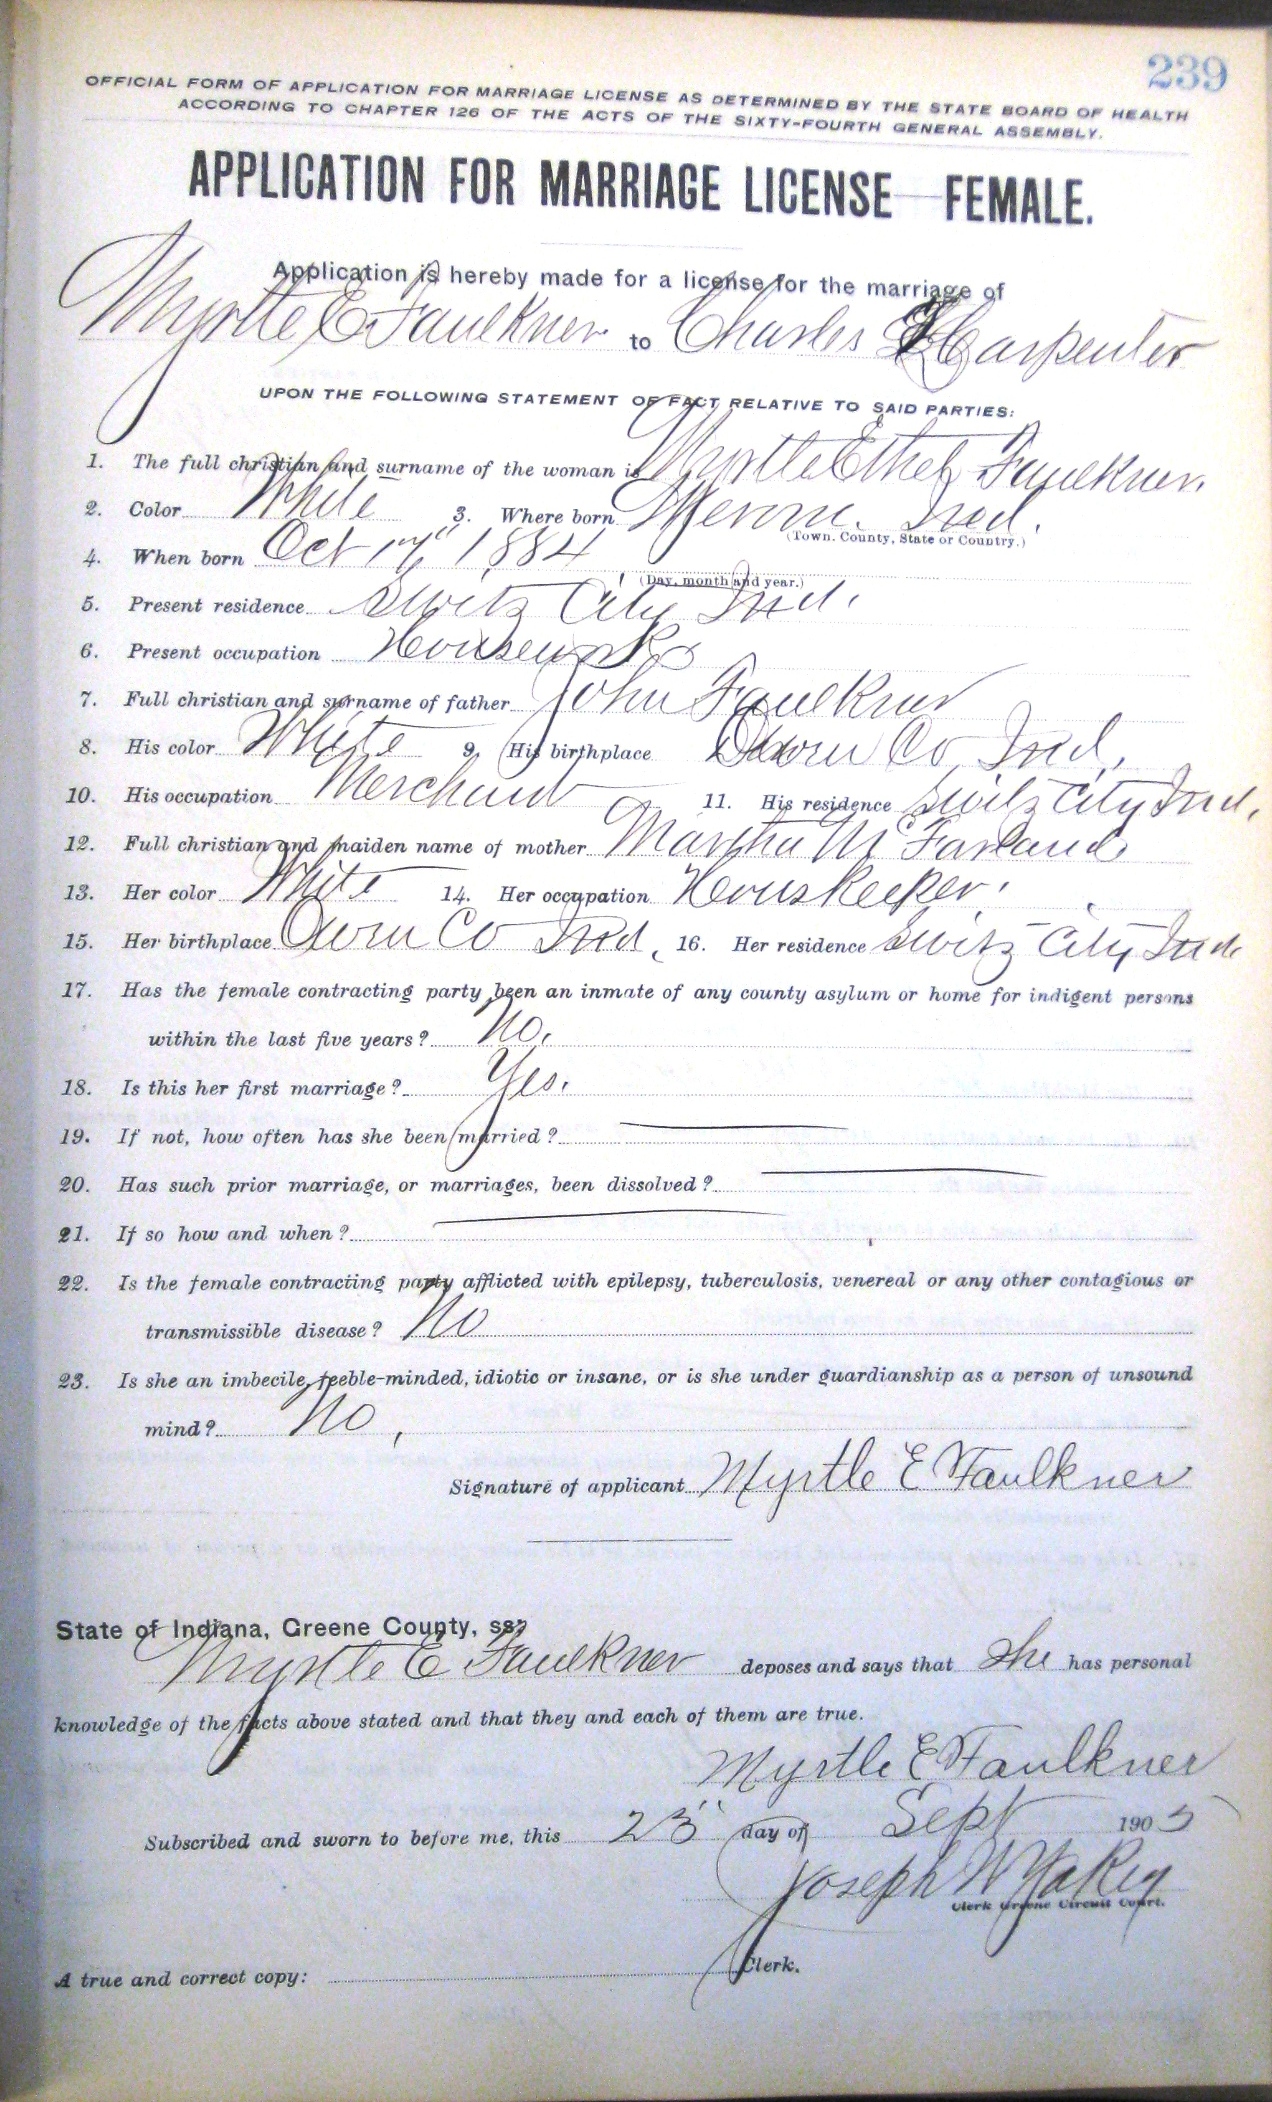 239
OFFICIAL FORM OF APPLICATION FOR MARRIAGE LICENSE AS DETERMINED BY THE STATE BOARD OF HEALTH
ACCORDING TO CHAPTER 126 OF THE ACTS OF THE SIXTY-FOURTH GENERAL ASSEMBLY.
APPLICATION FOR MARRIAGE LICENSE FEMALE.
Application is hereby made for a license for the marriage of
Myrtle E Faulkner to Charles Carpenter
UPON THE FOLLOWING STATEMENT OF FACT RELATIVE TO SAID PARTIES:
1. The full christian and surname of the woman is Myrtle Ethel Faulkner.
2. Color White 3. Where born Merom. Ind.
(Town. County, State or Country.)
4. When born Oct 17" 1884
(Day, month and year.)
5. Present residence Switz City Ind.
6. Present occupation Housework
7. Full christian and surname of father John Faulkner
8. His color White 9. His birthplace Owen Co Ind.
10. His occupation Merchant 11. His residence Switz City Ind.
12. Full christian and maiden name of mother Martha McFarland
13. Her color White 14. Her occupation Houskeeper.
15. Her birthplace Owen Co Ind, 16. Her residence Switz City Ind
17. Has the female contracting party been an inmate of any county asylum or home for indigent persons
within the last five years? No.
18. Is this her first marriage? Yes.
19. If not, how often has she been married?
20. Has such prior marriage, or marriages, been dissolved?
21. If so how and when?
22. Is the female contracting party afflicted with epilepsy, tuberculosis, venereal or any other contagious or
transmissible disease? No
23. Is she an imbecile, feeble-minded, idiotic or insane, or is she under guardianship as a person of unsound
mind? No,
Signature of applicant Myrtle E Faulkner
State of Indiana, Greene County, ss:
Myrtle E Faulkner deposes and says that She has personal
knowledge of the facts above stated and that they and each of them are true.
Myrtle E Faulkner
Subscribed and sworn to before me, this 23" day of Sept 1905
Joseph W Yakey
Clerk Greene Circuit Court.
A true and correct copy: Clerk.